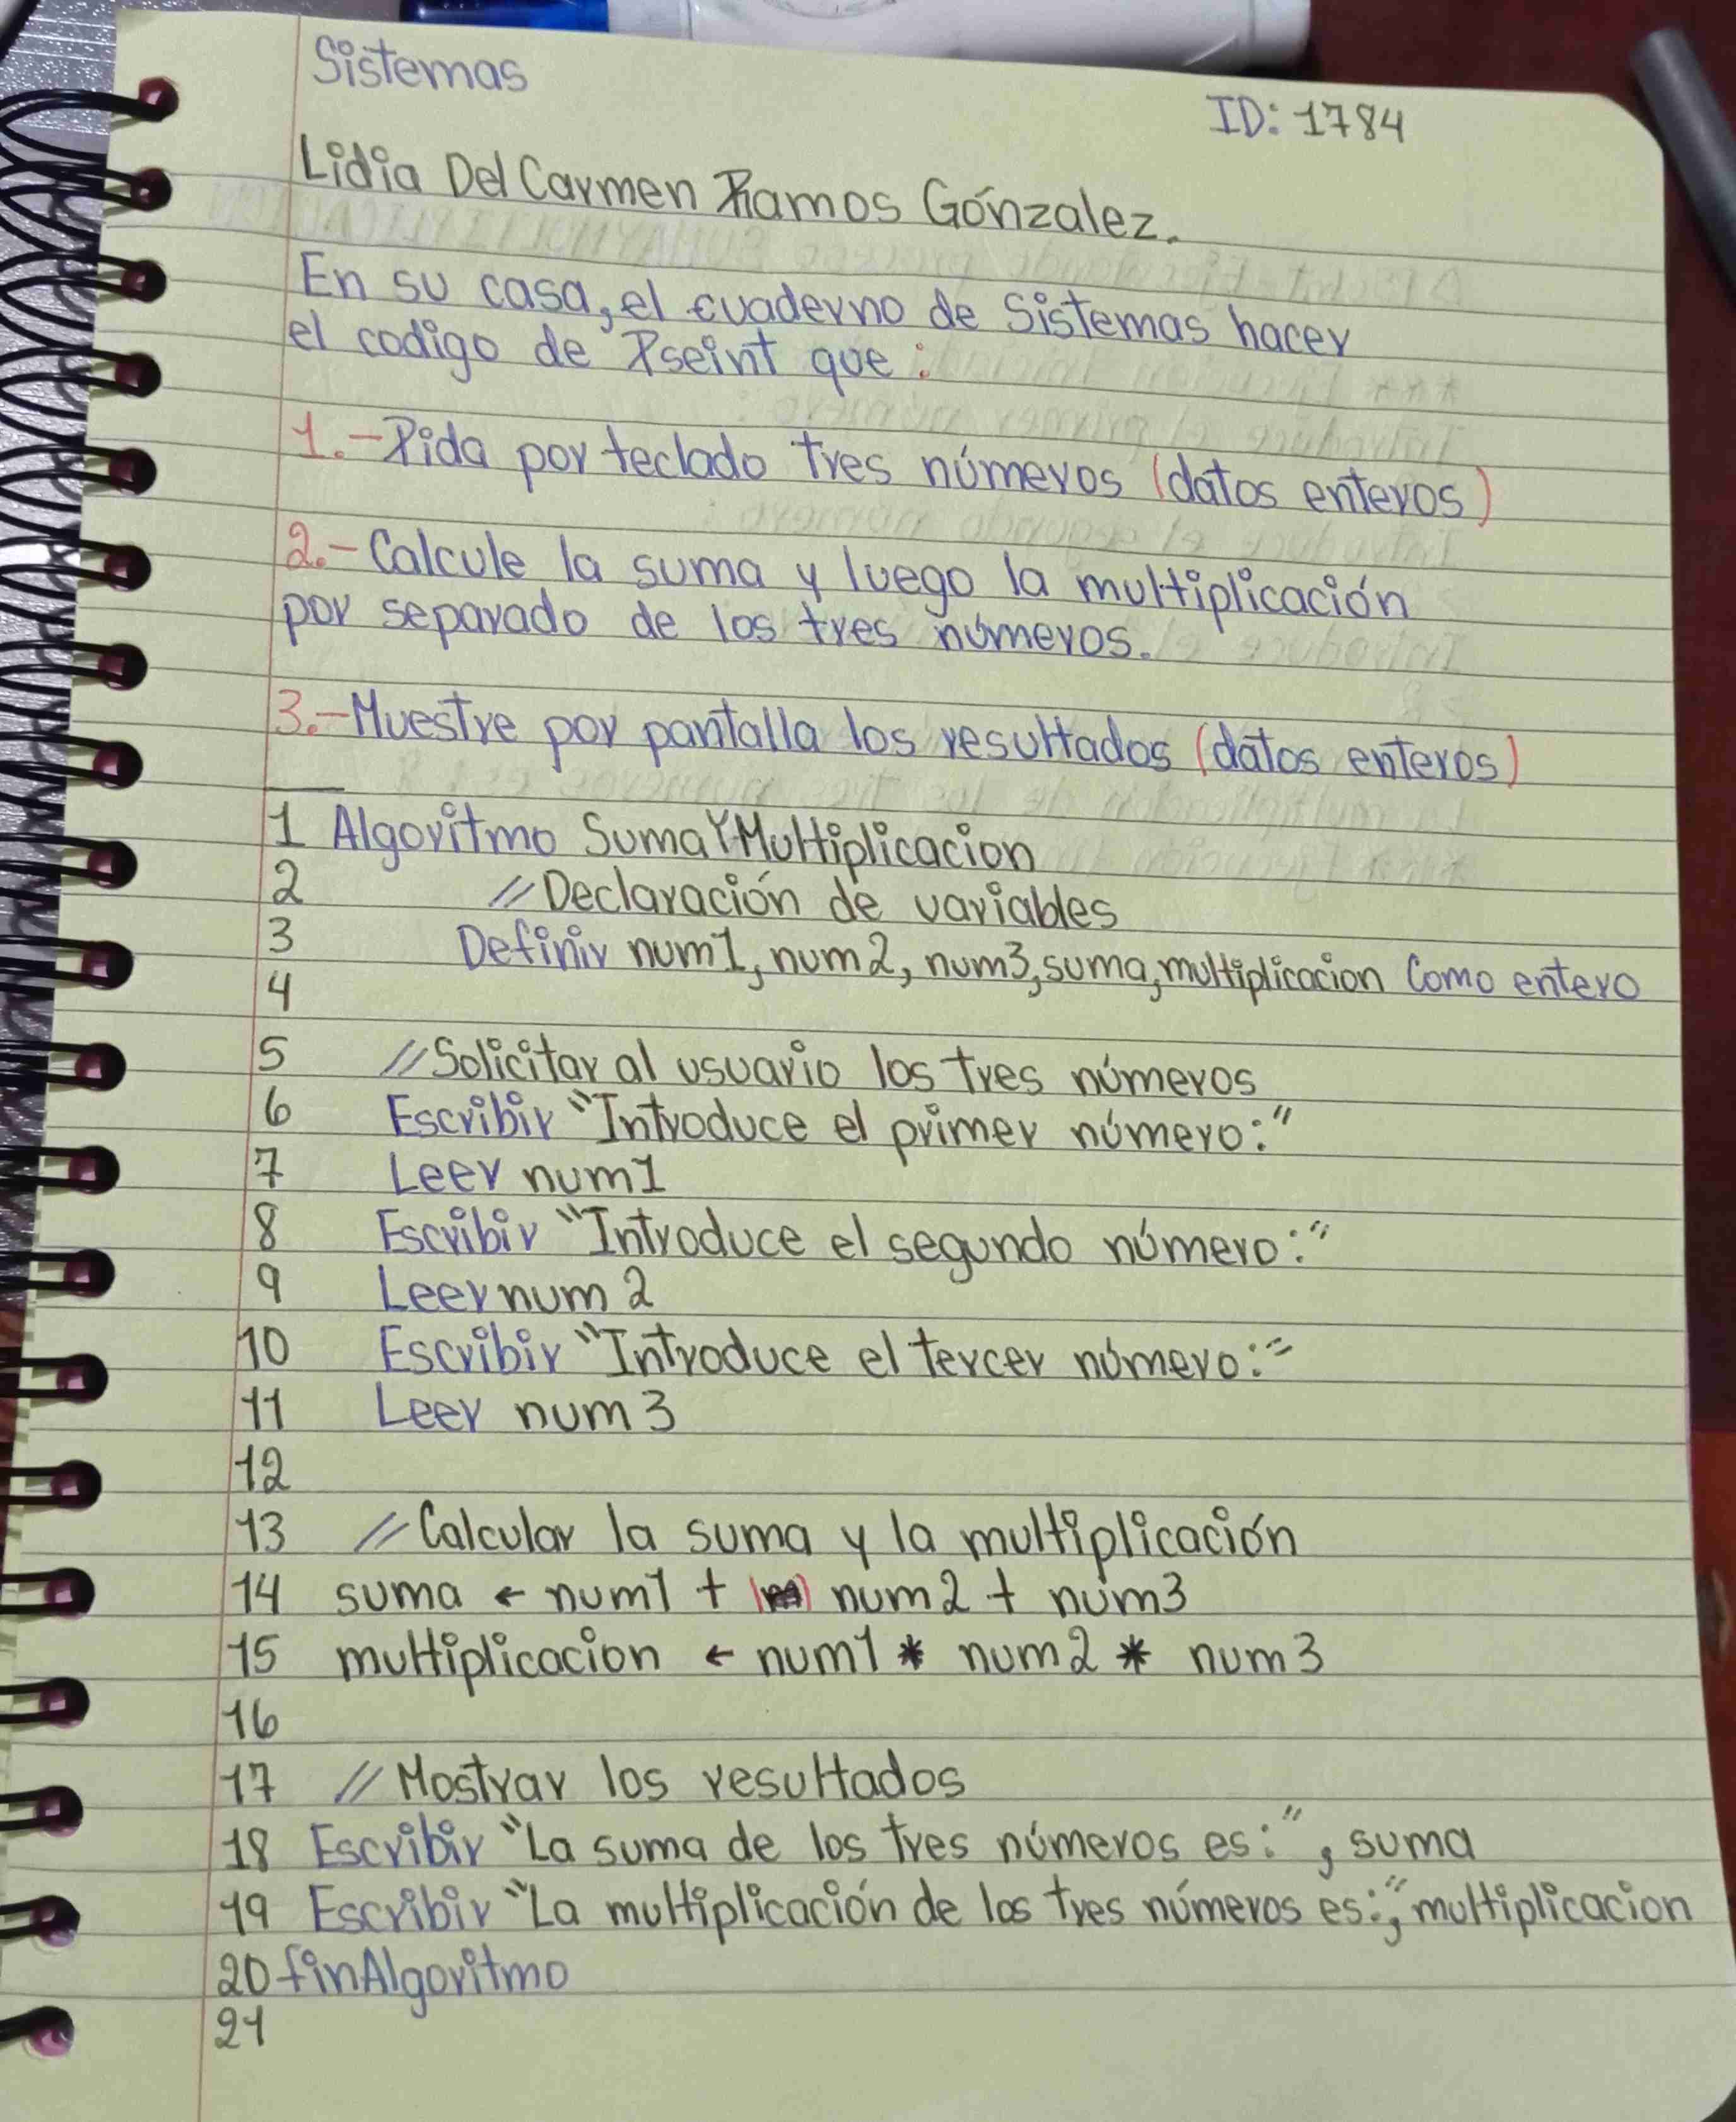 Sistemas
ID: 1784
Lidia Del Carmen Ramos Gónzalez.
En su casa, el cuaderno de Sistemas hacer
el codigo de Pseint que:
1.- Pida por teclado tres números (datos enteros)
2.- Calcule la suma y luego la multiplicación
por separado de los tres números.
3.- Muestre por pantalla los resultados (datos enteros)
1 Algoritmo SumaYMultiplicacion
2 // Declaración de variables
3 Definir num1, num2, num3, suma, multiplicacion Como entero
4
5 // Solicitar al usuario los tres números
6 Escribir "Introduce el primer número:"
7 Leer num1
8 Escribir "Introduce el segundo número:"
9 Leer num2
10 Escribir "Introduce el tercer número:"
11 Leer num3
12
13 // Calcular la suma y la multiplicación
14 suma ← num1 + num2 + num3
15 multiplicacion ← num1 * num2 * num3
16
17 // Mostrar los resultados
18 Escribir "La suma de los tres números es:", suma
19 Escribir "La multiplicación de los tres números es:", multiplicacion
20 finAlgoritmo
21